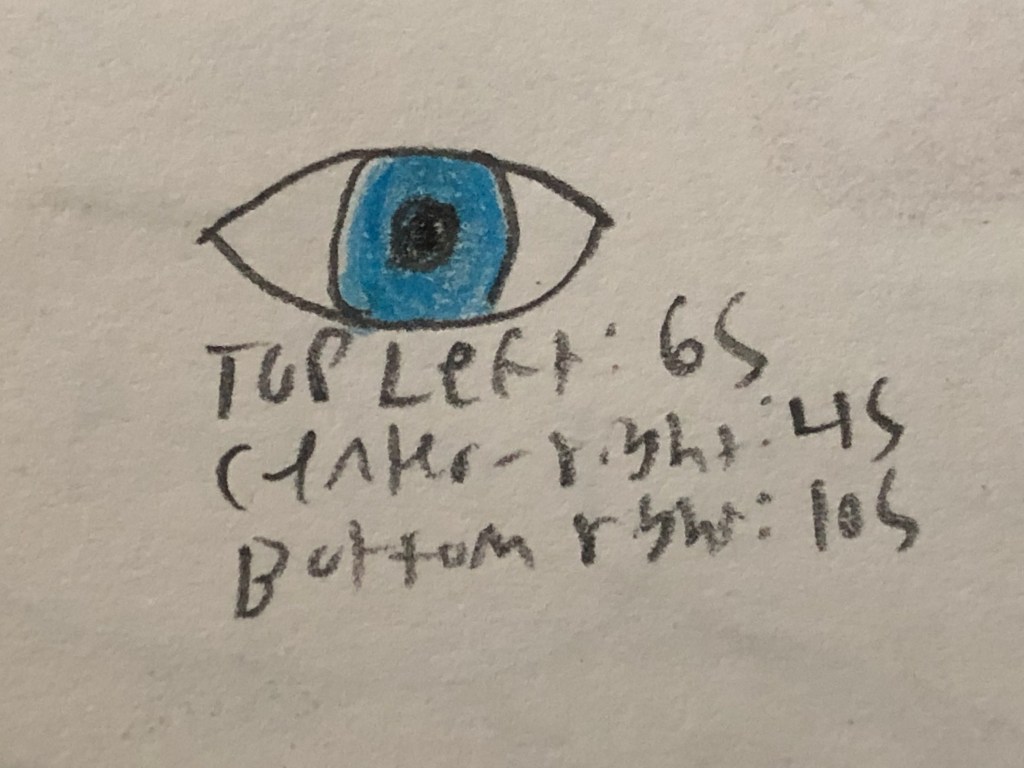 TOP Left: 6S
Center-right: 4S
Bottom right: 10S